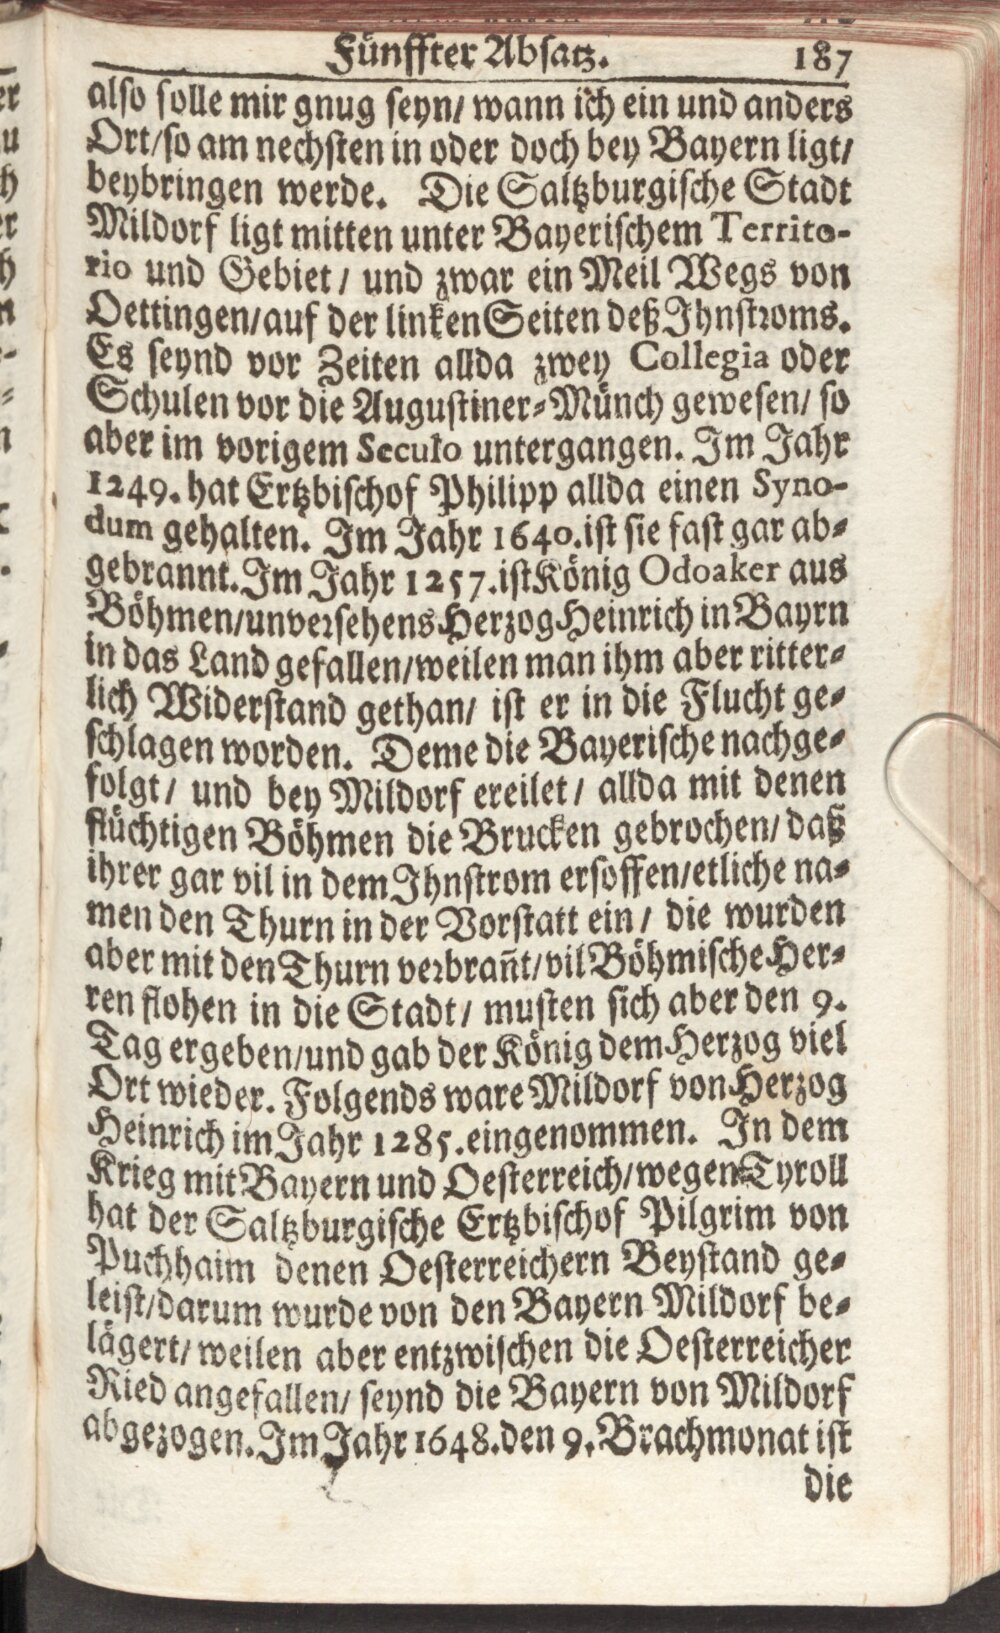 Fünffter Absatz. 187
also solle mir gnug seyn/ wann ich ein und anders
Ort/so am nechsten in oder doch bey Bayern ligt/
beybringen werde. Die Saltzburgische Stadt
Mildorf ligt mitten unter Bayerischem Territo-
rio und Gebiet / und zwar ein Meil Wegs von
Oettingen/auf der linken Seiten deß Ihnstroms.
Es seynd vor Zeiten allda zwey Collegia oder
Schulen vor die Augustiner-Münch gewesen/ so
aber im vorigem Seculo untergangen. Im Jahr
1249. hat Ertzbischof Philipp allda einen Syno-
dum gehalten. Im Jahr 1640. ist sie fast gar ab-
gebrannt. Im Jahr 1257. ist König Odoaker aus
Böhmen/unversehens Herzog Heinrich in Bayrn
in das Land gefallen/weilen man ihm aber ritter-
lich Widerstand gethan/ ist er in die Flucht ge-
schlagen worden. Deme die Bayerische nachge-
folgt / und bey Mildorf ereilet / allda mit denen
flüchtigen Böhmen die Brucken gebrochen/ daß
ihrer gar vil in dem Ihnstrom ersoffen/etliche na-
men den Thurn in der Vorstatt ein / die wurden
aber mit den Thurn verbrañt/vil Böhmische Her-
ren flohen in die Stadt / musten sich aber den 9.
Tag ergeben/und gab der König dem Herzog viel
Ort wieder. Folgends ware Mildorf von Herzog
Heinrich im Jahr 1285. eingenommen. In dem
Krieg mit Bayern und Oesterreich/wegen Tyroll
hat der Saltzburgische Ertzbischof Pilgrim von
Puchhaim denen Oesterreichern Beystand ge-
leist/darum wurde von den Bayern Mildorf be-
lägert/ weilen aber entzwischen die Oesterreicher
Ried angefallen/ seynd die Bayern von Mildorf
abgezogen. Im Jahr 1648. den 9. Brachmonat ist
die